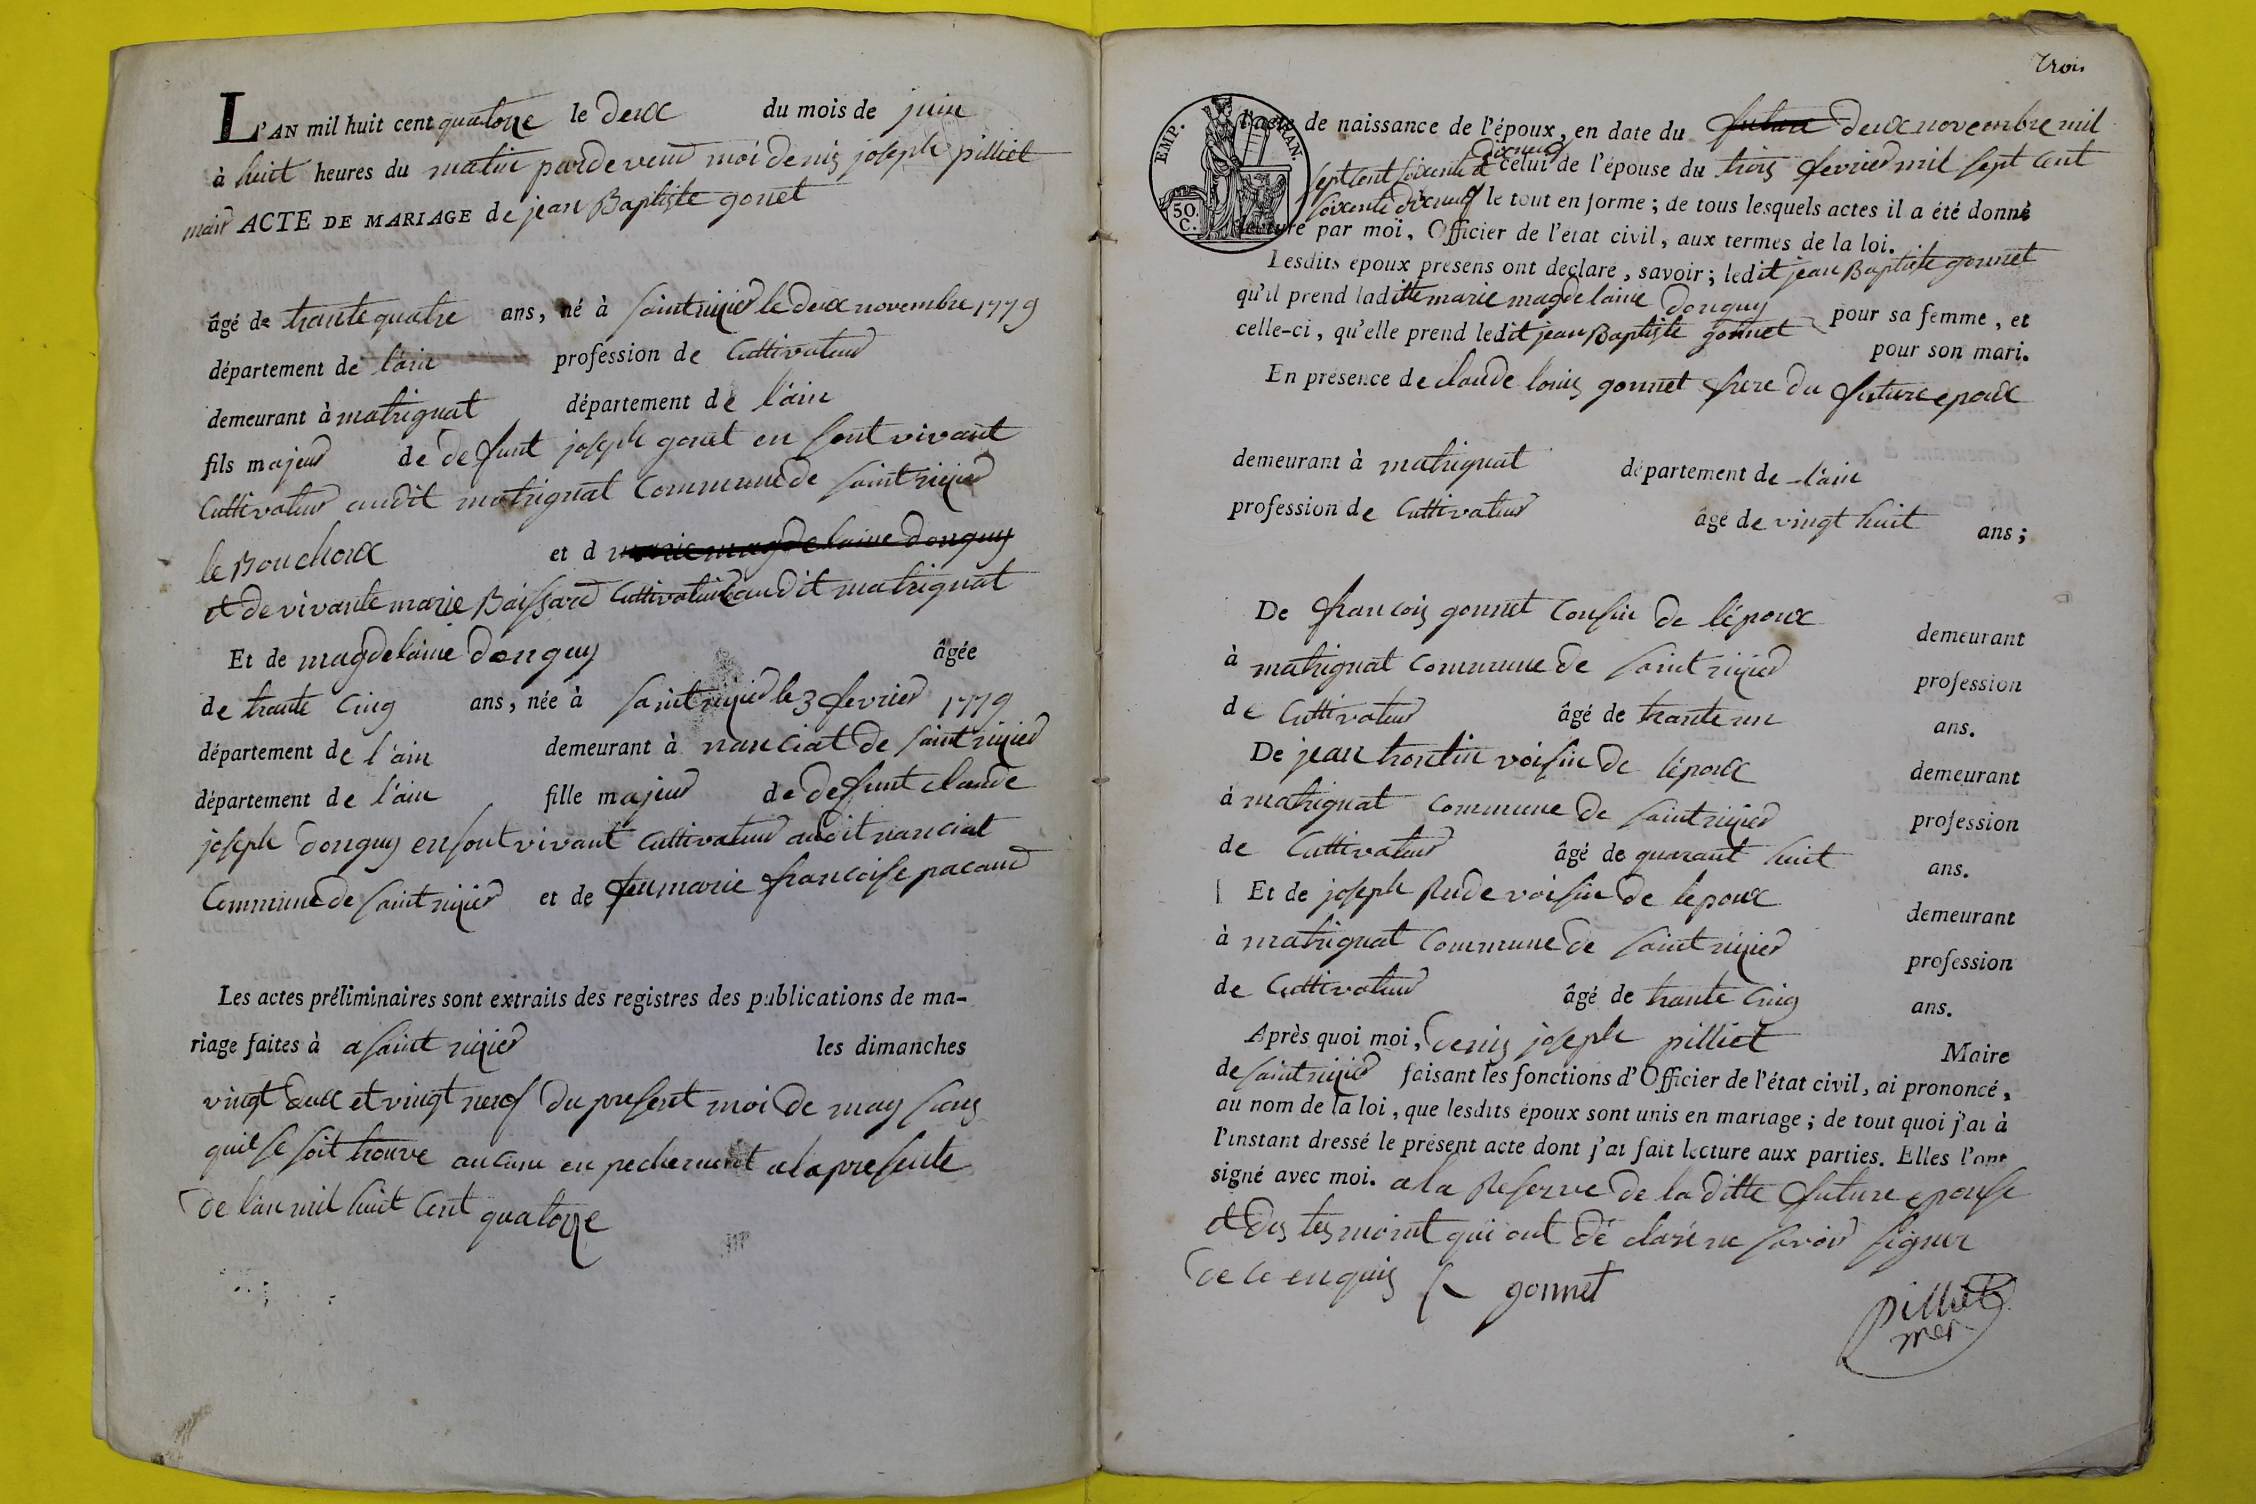 L'AN mil huit cent quatorze le deux du mois de juin
à huit heures du matin pardevent moi denis joseph pilliet
mair ACTE DE MARIAGE de jean Baptiste gonet
âgé de trante quatre ans, né à saint nizier le deux novembre 1779
département de l'ain profession de Cultivateur
demeurant à matrignat département de l'ain
fils majeur de defunt joseph gonet en sont vivant
Cultivateur audit matrignat Commune de saint nizier
le Bouchoux et d marie magdelaine donguy
et de vivante marie Baissard Cultivatrice audit matrignat
Et de magdelaine donguy âgée
de trante Cinq ans, née à saint nizier le 3 fevrier 1779
département de l'ain demeurant à nanciat de saint nizier
département de l'ain fille majeur de defunt claude
joseph donguy en sont vivant Cultivateur audit nanciat
Commune de saint nizier et de feu marie francoise pacaud
Les actes préliminaires sont extraits des registres des publications de ma-
riage faites à a saint nizier les dimanches
vingt deux et vingt neuf du present moi de may sans
quil se soit trouve aucune en pechement a la presente
de l'an mil huit Cent quatorze
Trois
EMP. FRAN.
50. C.
l'acte de naissance de l'époux, en date du future deux novembre mil
dixneuf
sept cent soixante et celui de l'épouse du trois fevrier mil sept cent
soixante dixneuf le tout en forme ; de tous lesquels actes il a été donné
lecture par moi, Officier de l'état civil, aux termes de la loi.
Lesdits époux présens ont déclaré, savoir ; ledit jean Baptiste gonnet
qu'il prend laditte marie magdelaine donguy pour sa femme, et
celle-ci, qu'elle prend ledit jean Baptiste gonnet pour son mari.
En présence de claude louis gonnet frere du future epoux
demeurant à matrignat département de l'ain
profession de Cultivateur âgé de vingt huit ans ;
De francois gonnet Cousin de l'époux demeurant
à matrignat Commune de saint nizier profession
de Cultivateur âgé de trante un ans.
De jean trontin voisin de l'époux demeurant
à matrignat Commune de saint nizier profession
de Cultivateur âgé de quarant huit ans.
Et de joseph Rude voisin de lepoux demeurant
à matrignat Commune de saint nizier profession
de Cultivateur âgé de trante Cinq ans.
Après quoi moi, denis joseph pilliet Maire
de saint nizier faisant les fonctions d'Officier de l'état civil, ai prononcé,
au nom de la loi, que lesdits époux sont unis en mariage ; de tout quoi j'ai à
l'instant dressé le présent acte dont j'ai fait lecture aux parties. Elles l'ont
signé avec moi. a la Reserve de la ditte future epouse
et des tesmoint qui ont dé claré ne savoir signer
de ce enquis gonnet
pilliet
mer